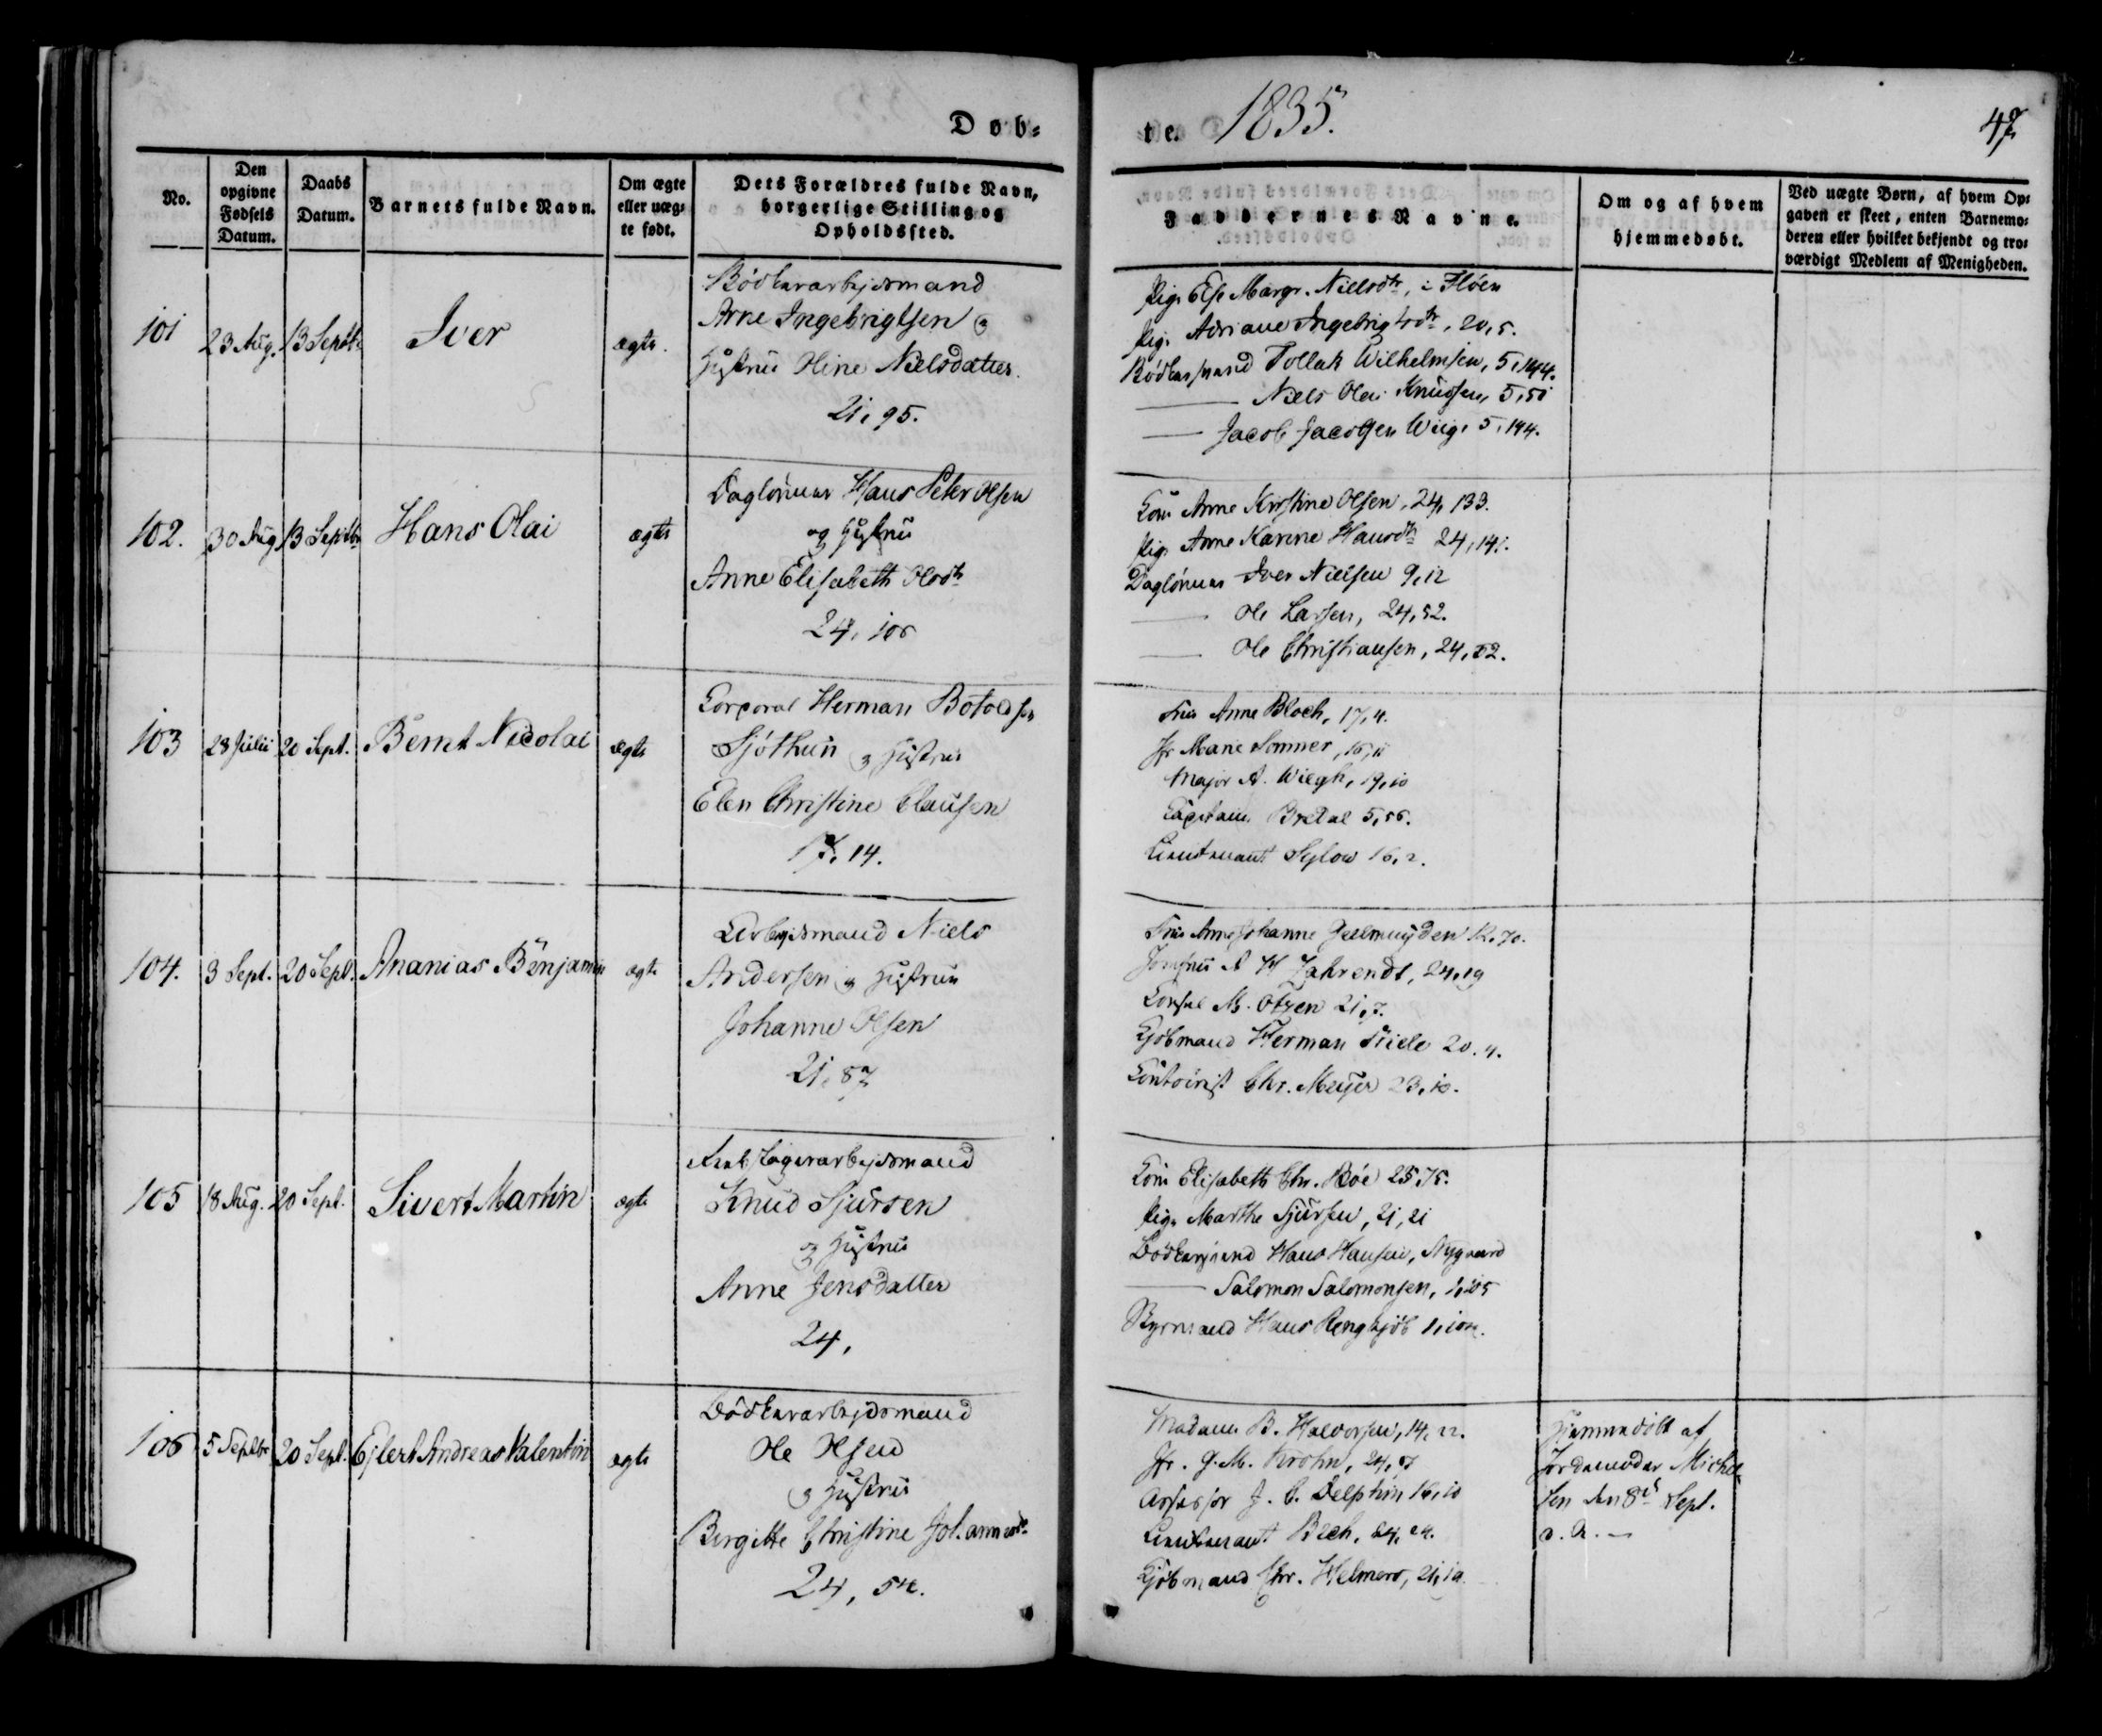 Døb-
te. 1835.
47
No.
Den opgivne Fødsels Datum.
Daabs Datum.
Barnets fulde Navn.
Om ægte eller uæg-te født.
Dets Forældres fulde Navn, borgerlige Stilling og Opholdssted.
Faddernes Navne.
Om og af hvem hjemmedøbt.
Ved uægte Børn, af hvem Op-gaven er skeet, enten Barnemo-deren eller hvilket bekjendt og tro-værdigt Medlem af Menigheden.
101 23 Aug. 13 Septbr Iver ægte.
Bødkerarbejdsmand
Arne Ingebrigtsen og
Hustrue Hine Nielsdatter.
21, 95.
Pige Else Margr. Nielsdtr, i Fløen
Pige Adriane Ingebrigtsdtr, 20, 5.
Bødkersvend Tollak Wilhelmsen, 5, 144.
— Niels Olai Knudsen, 5, 51
— Jacob Jacobsen Wiig, 5, 194.
102. 30 Aug 13 Septbr Hans Olai ægte
Daglønner Hans Peter Olsen
og Hustrue
Anne Elisabeth Olsdtr
24, 106
Kone Anne Kirstine Olsen, 24, 133.
Pige Anne Karine Hansdtr 24, 141.
Daglønner Iver Nielsen 9, 12
— Ole Larsen, 24, 52.
— Ole Christiansen, 24, 52.
103 28 Julii 20 Sept. Bernt Nicolai ægte
Corporal Herman Botolfsen
Sjøthun og Hustrue
Elen Christine Clausen
17, 14.
Frue Anne Bloch, 17, 4.
Jfr Marie Sommer, 16, 11
Major A. Wiegh, 19, 10
Capitain Bredal 5, 56.
Lieutenant Sylow 16, 2.
104. 3 Sept. 20 Sept. Ananias Benjamin ægte
Arbejdsmand Niels
Andersen og Hustrue
Johanne Olsen
21, 87
Frue Anne Johanne Geelmuyden 12, 70.
Jomfrue A H Jahrendt, 24, 19
Consul M. Otzen 21, 7.
Kjøbmand Herman Friele 20, 4.
Contoirist Chr. Meyer 23, 10.
105 18 Aug. 20 Sept. Sivert Martin ægte
Knud Sjursen
og Hustrue
Anne Jensdatter
24,
Kone Elisabeth Chr. Bøe 25, 75.
Pige Marthe Sjursen, 21, 21
Bødkersvend Hans Hansen, Nygaard
— Salomon Salomonsen, 1, 105
Styrmand Hans Rengkjøb 1, 102.
106 5 Septbr 20 Sept. Ejlert Andreas Valentin ægte
Bødkerarbejdsmand
Ole Olsen
og Hustrue
Birgitte Christine Johannesdr
24, 52.
Madame B. Halvorsen, 14, 22.
Jfr. G. M. Krohn, 24, 87
Assessor J. C. Delphin 16, 10
Lieutenant Bech, 24, 24.
Kjøbmand Chr. Helmers, 21, 19.
Hjemmedøbt af
Jordemoder Michel-
sen den 8de Sept.
d. A. —